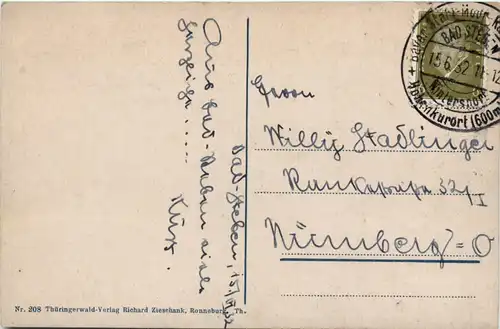 Aus Bad-Steben viele
Kurt.
Bad-Steben, 15/VI.32
Herrn
Willy Stadlinger
32/I
Nürnberg-O
BAD STEBEN
15.6.32
Höhenkurort (600m
Nr. 208 Thüringerwald-Verlag Richard Zieschank, Ronneburg, Th.